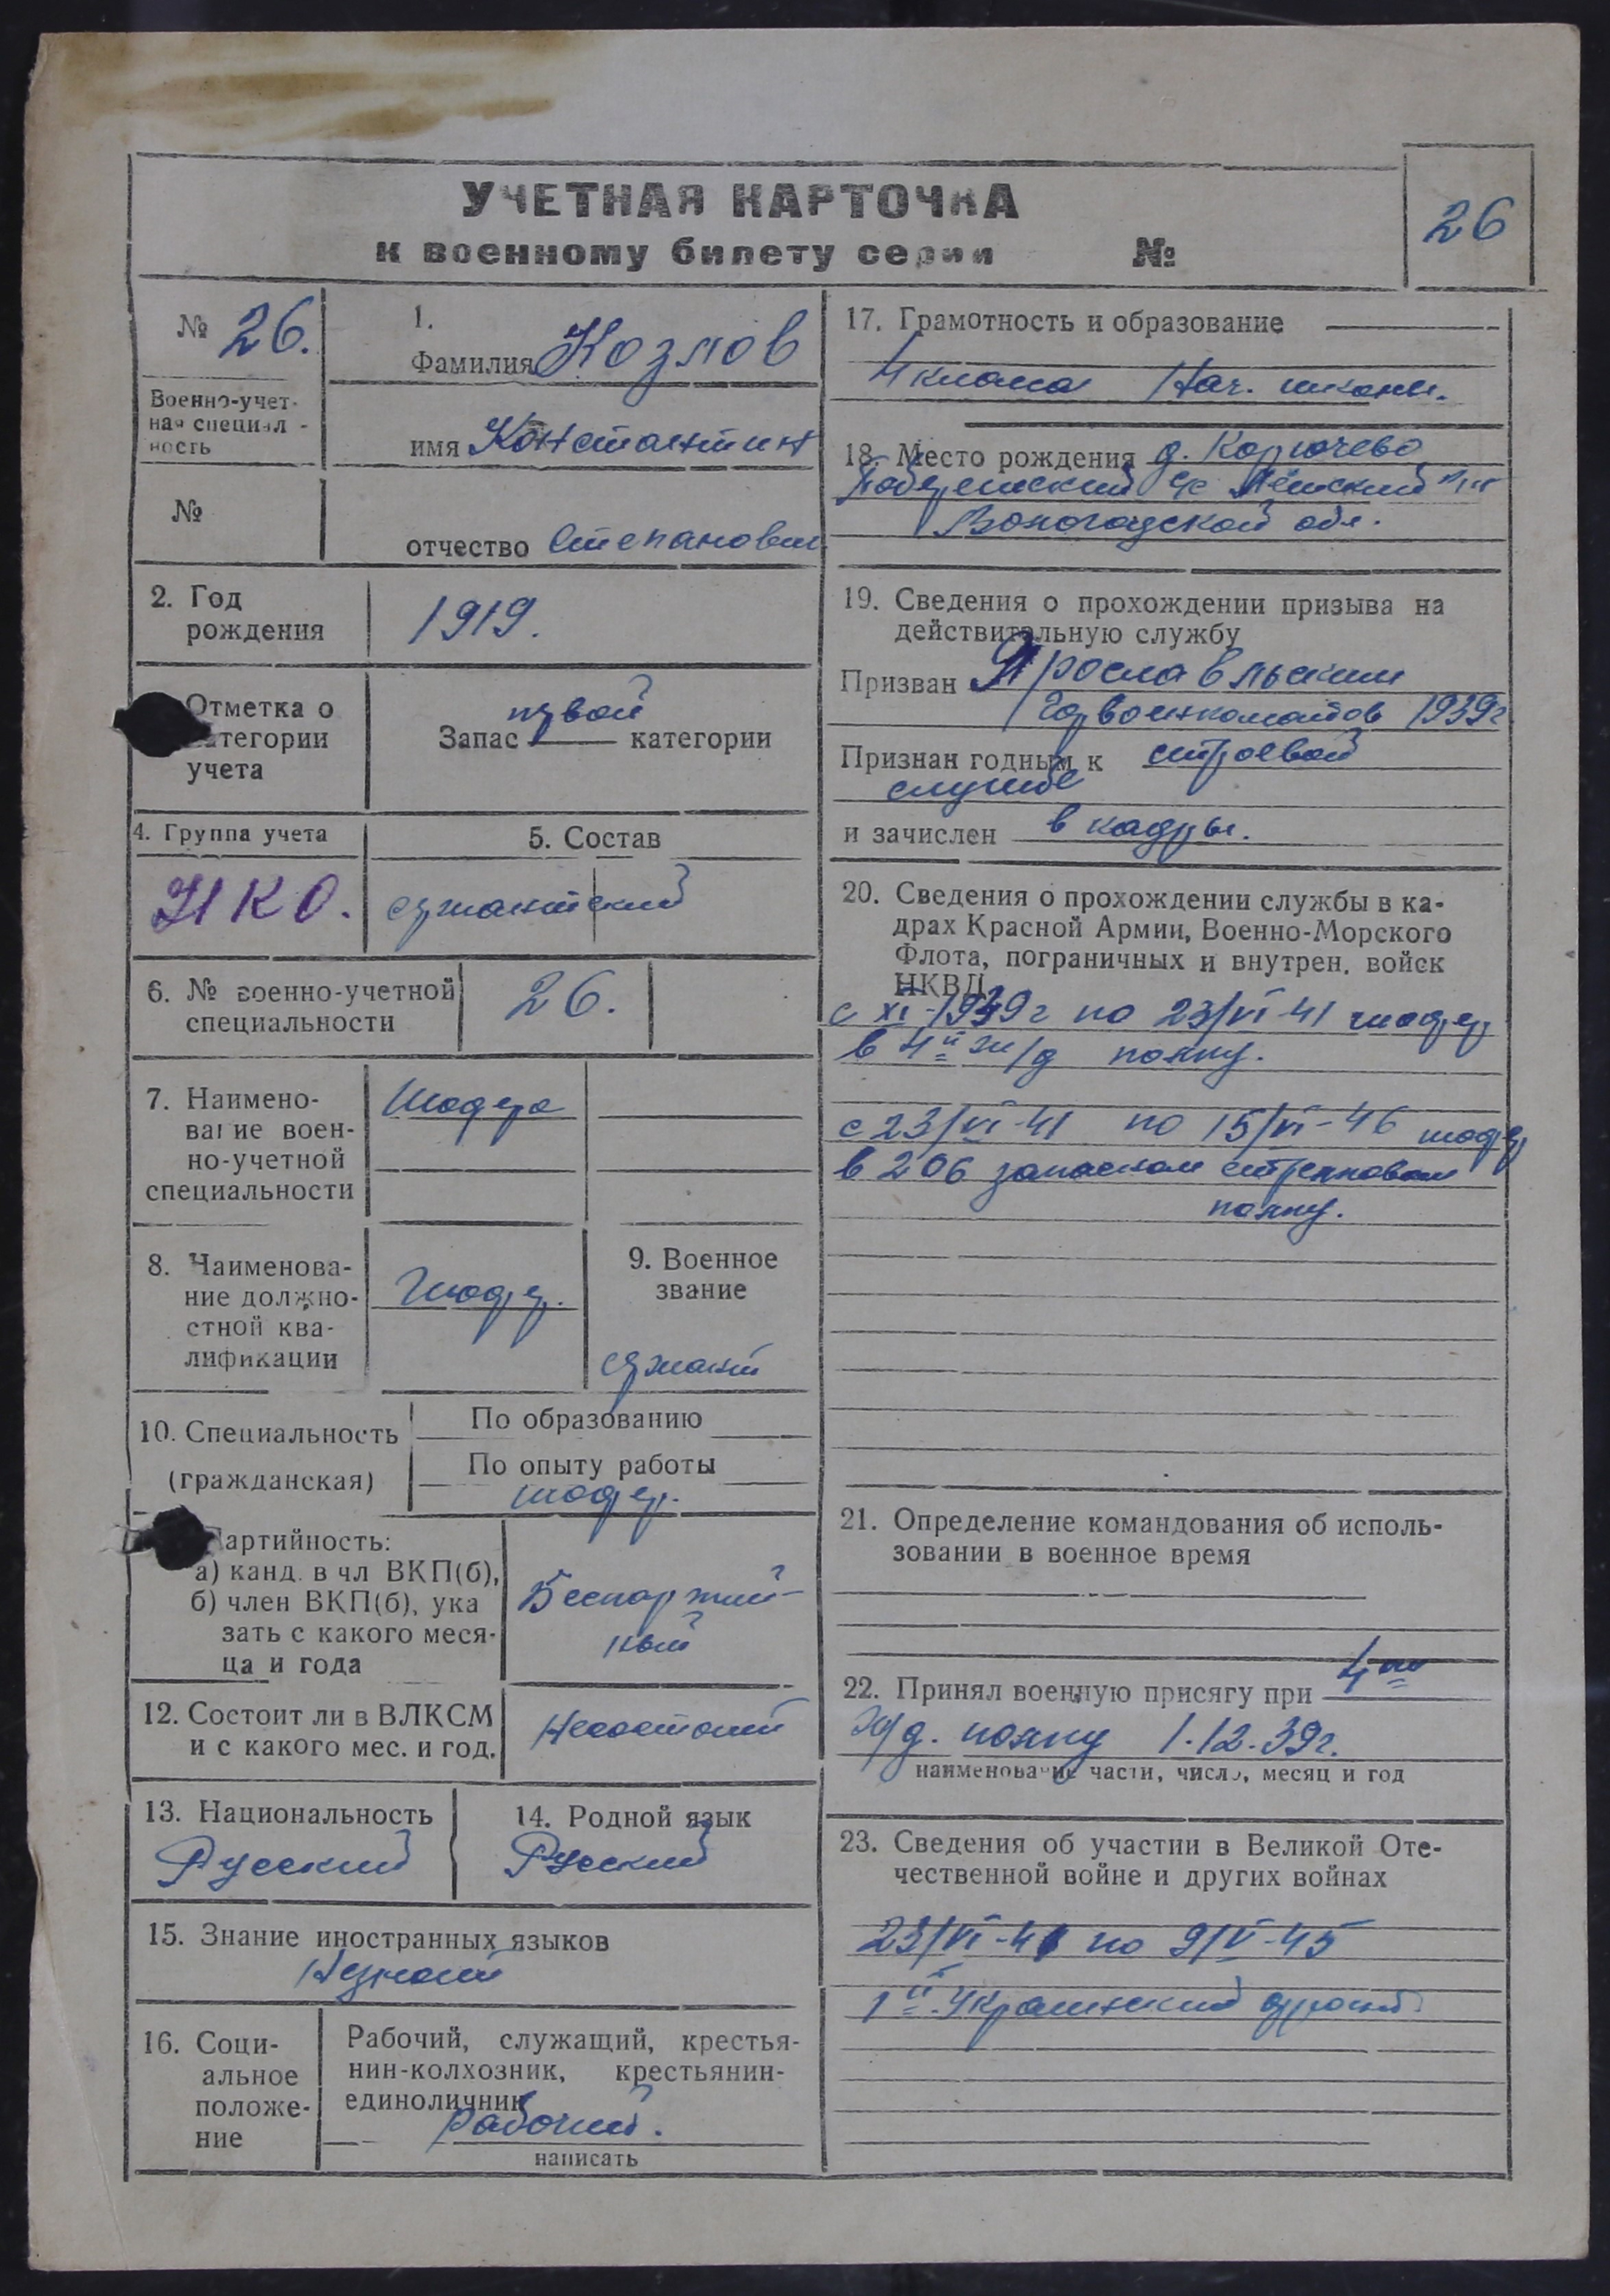 УЧЕТНАЯ КАРТОЧКА
к военному билету серии №
26
№ 26.
Военно-учет-
ная специал-
ность
№
1.
Фамилия Козлов
имя Константин
отчество Степанович
2. Год
рождения
1919.
Отметка о
категории
учета
Запас первой категории
4. Группа учета
НКО.
5. Состав
сержантский
6. № военно-учетной
специальности
26.
7. Наимено-
вание воен-
но-учетной
специальности
Шофера
8. Наименова-
ние должно-
стной ква-
лификации
Шофер.
9. Военное
звание
сержант
10. Специальность
(гражданская)
По образованию
По опыту работы
шофер.
Партийность:
а) канд. в чл ВКП(б),
б) член ВКП(б), ука
зать с какого меся-
ца и года
Беспартий-
ный
12. Состоит ли в ВЛКСМ
и с какого мес. и год.
Несостоит
13. Национальность
Русский
14. Родной язык
Русский
15. Знание иностранных языков
Незнает
16. Соци-
альное
положе-
ние
Рабочий, служащий, крестья-
нин-колхозник, крестьянин-
единоличник
рабочий.
написать
17. Грамотность и образование
4 класса Нач. школы.
18. Место рождения д. Корючево
с/с р-н
Вологодской обл.
19. Сведения о прохождении призыва на
действительную службу
Призван Ярославским
Горвоенкоматов 1939г
Признан годным к строевой
службе
и зачислен в кадры.
20. Сведения о прохождении службы в ка-
драх Красной Армии, Военно-Морского
Флота, пограничных и внутрен. войск
НКВД
с XI-1939г по 23/VI-41 шофер
в 4й ж/д полку.
с 23/VI-41 по 15/VI-46 шофер
в 206 запасном стрелковом
полку.
21. Определение командования об исполь-
зовании в военное время
22. Принял военную присягу при 4ом
ж/д. полку 1.12.39г.
наименование части, число, месяц и год
23. Сведения об участии в Великой Оте-
чественной войне и других войнах
23/VI-41 по 9/V-45
1й Украинский фронт